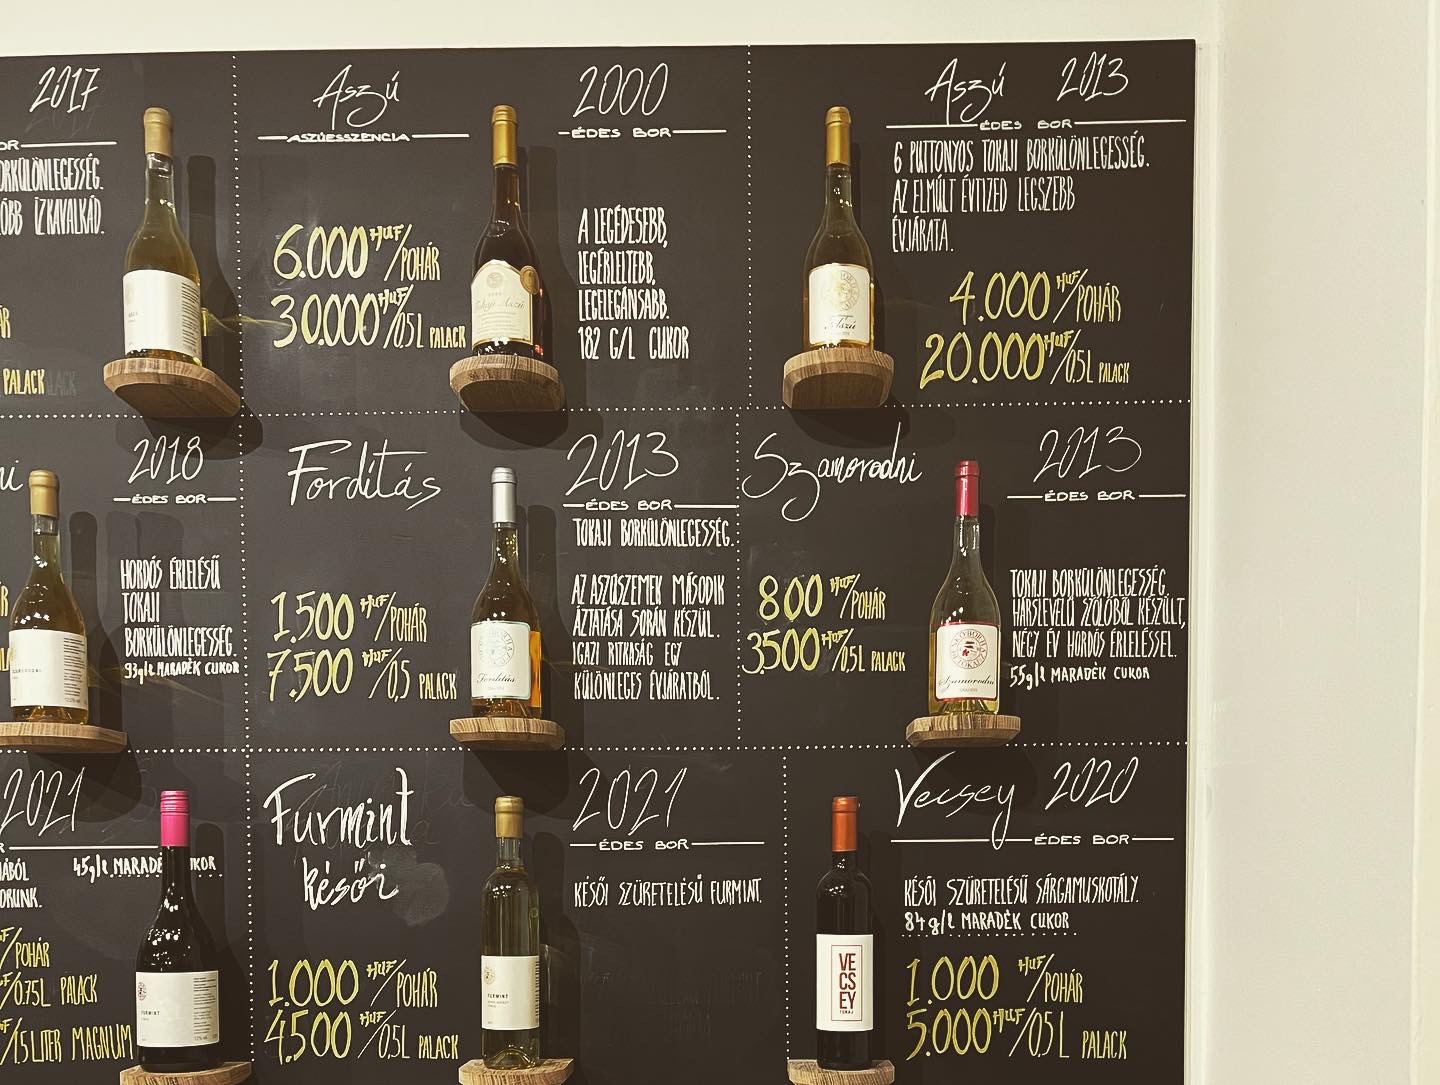 2017
BORKÜLÖNLEGESSÉG.
ÍZKAVALKÁD.
PALACK
Aszú
ASZÚESSZENCIA
6.000 HUF/POHÁR
30.000 HUF/0,5L PALACK
2000
ÉDES BOR
A LEGÉDESEBB,
LEGÉRLELTEBB,
LEGELEGÁNSABB.
182 G/L CUKOR
Tokaji Aszú
Aszú 2013
ÉDES BOR
6 PUTTONYOS TOKAJI BORKÜLÖNLEGESSÉG.
AZ ELMÚLT ÉVTIZED LEGSZEBB
ÉVJÁRATA.
4.000 HUF/POHÁR
20.000 HUF/0,5L PALACK
Aszú
2018
ÉDES BOR
HORDÓS ÉRLELÉSŰ
TOKAJI
BORKÜLÖNLEGESSÉG.
93g/l MARADÉK CUKOR
Fordítás
1.500 HUF/POHÁR
7.500 HUF/0,5 PALACK
Fordítás
2013
ÉDES BOR
TOKAJI BORKÜLÖNLEGESSÉG.
AZ ASZÚSZEMEK MÁSODIK
ÁZTATÁSA SORÁN KÉSZÜL.
IGAZI RITKASÁG EGY
KÜLÖNLEGES ÉVJÁRATBÓL.
Szamorodni
800 HUF/POHÁR
3500 HUF/0,5L PALACK
Szamorodni
2013
ÉDES BOR
TOKAJI BORKÜLÖNLEGESSÉG.
HÁRSLEVELŰ SZŐLŐBŐL KÉSZÜLT,
NÉGY ÉV HORDÓS ÉRLELÉSSEL.
55g/l MARADÉK CUKOR
2021
45g/l MARADÉK CUKOR
HUF/POHÁR
/0.75L PALACK
/1,5 LITER MAGNUM
FURMINT
Furmint
késői
1.000 HUF/POHÁR
4.500 HUF/0,5L PALACK
FURMINT
2021
ÉDES BOR
KÉSŐI SZÜRETELÉSŰ FURMINT.
Vecsey 2020
ÉDES BOR
KÉSŐI SZÜRETELÉSŰ SÁRGAMUSKOTÁLY.
84g/l MARADÉK CUKOR
1.000 HUF/POHÁR
5.000 HUF/0,5L PALACK
VE
CS
EY
TOKAJ